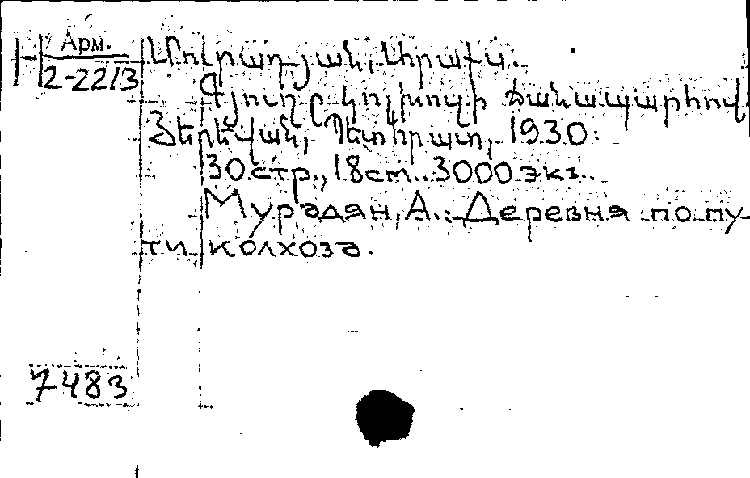 Арм.
2-2213
Մուրադյան,
Գյուղը կոլխոզի ճանապարհով
Յերեվան, Պետհրատ, 1930.
30 стр., 18 cm. 3000 экз.
Мурадян, А. Деревня по пу-
ти колхоза.
7483